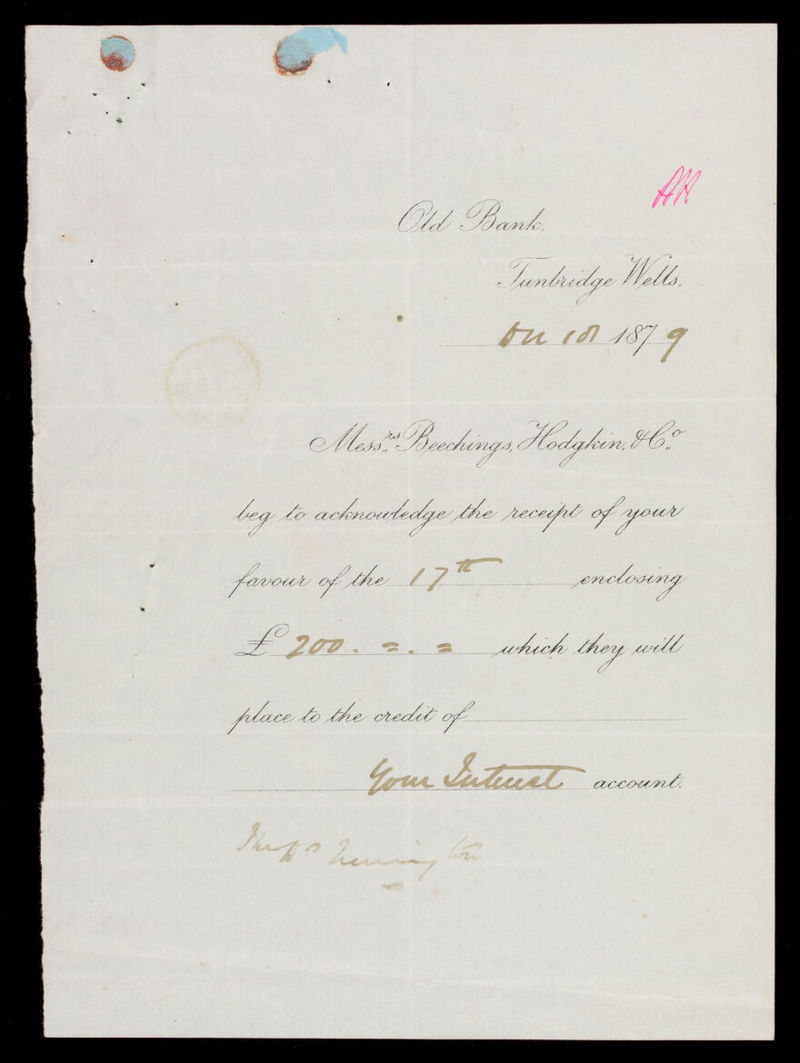 Old Bank.
Tunbridge Wells,
1879
Messrs. Beechings, Hodgkin, & Co.
beg to acknowledge the receipt of your
favour of the 17th enclosing
£ 200. = . = which they will
place to the credit of
Your Interest account.